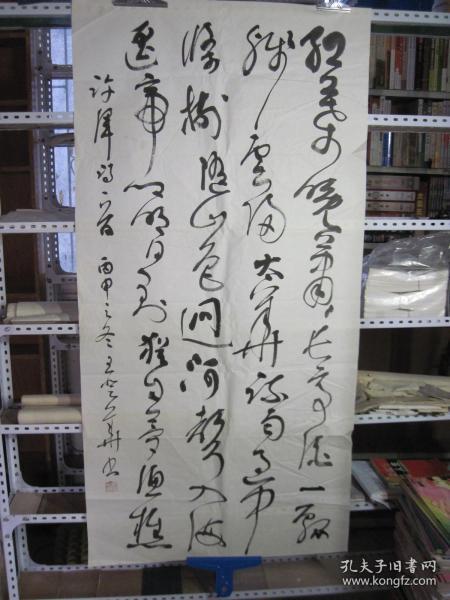 紅葉晚蕭蕭長亭酒一瓢
殘雲歸太華疏雨過中
條樹隨山色迥河聲入海
遥帝鄉明日到猶自夢漁樵
許渾詩一首 丙申之冬王書
孔夫子旧书网
www.kongfz.com